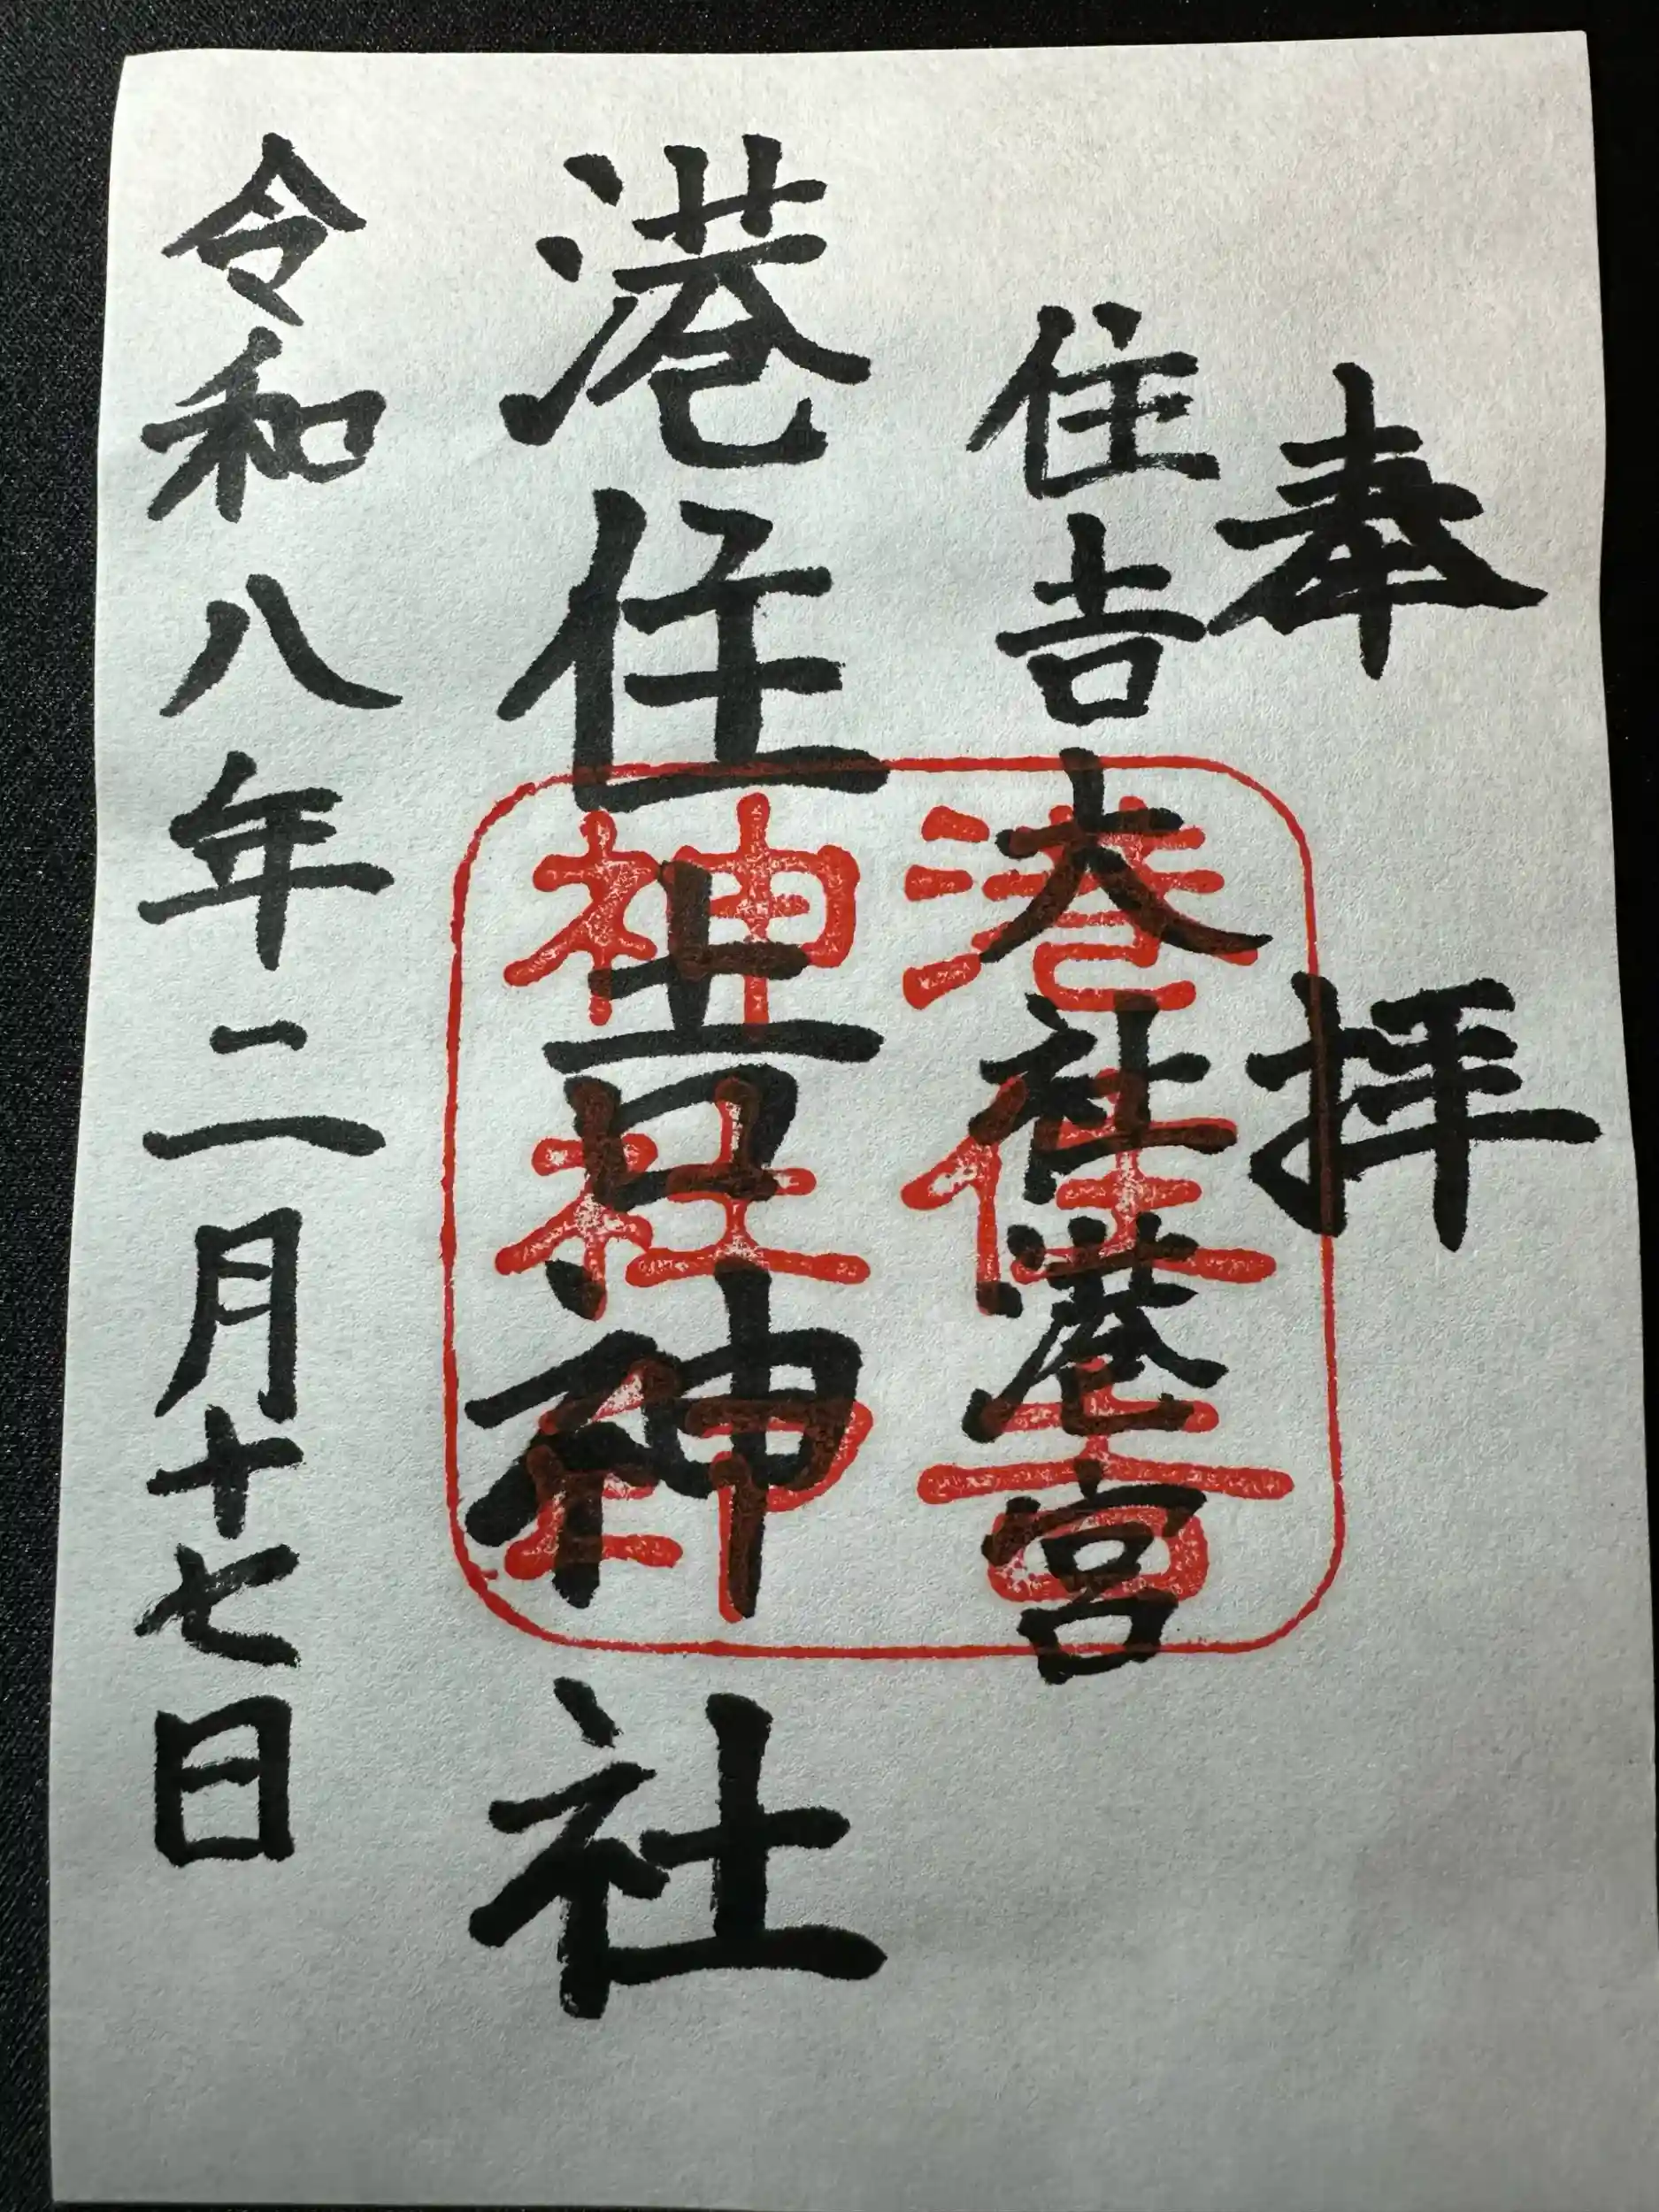 奉拝
住吉大社港宮
港住吉神社
令和八年二月十七日
港住吉
神社神印